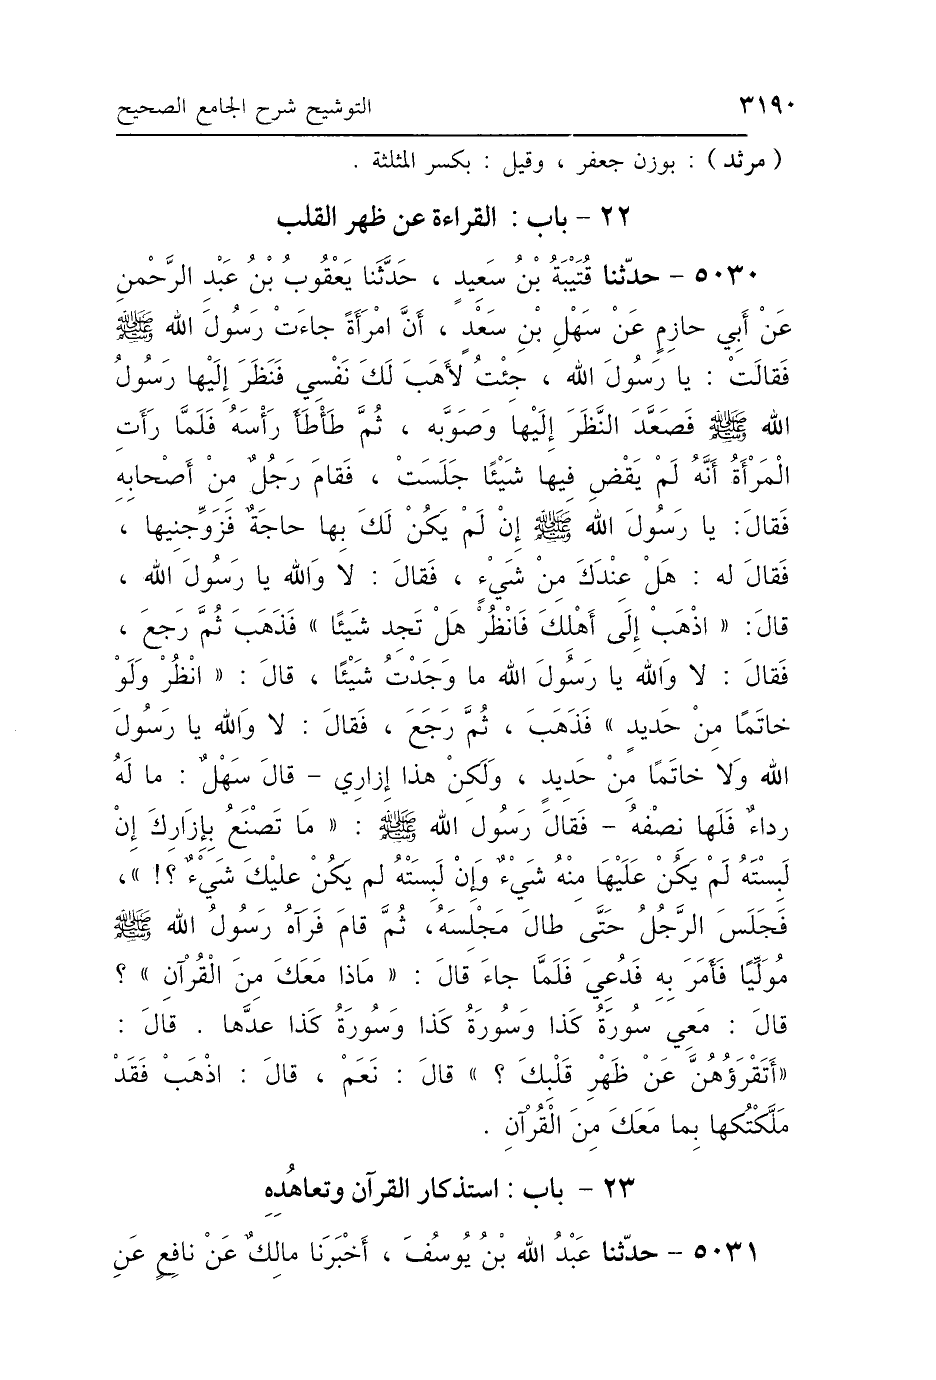 ٣١٩٠ التوشيح شرح الجامع الصحيح
( مرثد ) : بوزن جعفر ، وقيل : بكسر المثلثة .
٢٢ - باب : القراءة عن ظهر القلب
٥٠٣٠ - حدّثنا قُتَيْبَةُ بْنُ سَعِيدٍ ، حَدَّثَنا يَعْقُوبُ بْنُ عَبْدِ الرَّحْمنِ
عَنْ أَبِي حازِمٍ عَنْ سَهْلِ بْنِ سَعْدٍ ، أَنَّ امْرَأَةً جاءَتْ رَسُولَ الله ﷺ
فَقالَتْ : يا رَسُولَ الله ، جِئْتُ لأَهَبَ لَكَ نَفْسِي فَنَظَرَ إِلَيْها رَسُولُ
الله ﷺ فَصَعَّدَ النَّظَرَ إِلَيْها وَصَوَّبَه ، ثُمَّ طَأْطَأَ رَأْسَهُ فَلَمَّا رَأَت
الْمَرْأَةُ أَنَّهُ لَمْ يَقْضِ فِيها شَيْئًا جَلَسَتْ ، فَقامَ رَجُلٌ مِنْ أَصْحابِهِ
فَقالَ: يا رَسُولَ الله ﷺ إِنْ لَمْ يَكُنْ لَكَ بِها حاجَةٌ فَزَوِّجنِيها ،
فَقالَ له : هَلْ عِنْدَكَ مِنْ شَيْءٍ ، فَقالَ : لا وَالله يا رَسُولَ الله ،
قالَ: « اذْهَبْ إِلَى أَهْلِكَ فَانْظُرْ هَلْ تَجِد شَيْئًا » فَذَهَبَ ثُمَّ رَجعَ ،
فَقالَ : لا وَالله يا رَسُولَ الله ما وَجَدْتُ شَيْئًا ، قالَ : « انْظُرْ وَلَوْ
خاتَمًا مِنْ حَدِيدٍ » فَذَهَبَ ، ثُمَّ رَجَعَ ، فَقالَ : لا وَالله يا رَسُولَ
الله وَلا خاتَمًا مِنْ حَدِيدٍ ، وَلَكِنْ هذا إِزارِي - قالَ سَهْلٌ : ما لَهُ
رِداءٌ فَلَها نِصْفهُ - فَقالَ رَسُول الله ﷺ : « مَا تَصْنَعُ بِإِزَارِكَ إِنْ
لَبِسْتَهُ لَمْ يَكُنْ عَلَيْهَا مِنْهُ شَيْءٌ وَإِنْ لَبِسَتْهُ لم يَكُنْ عليْكَ شَيْءٌ ؟! »،
فَجَلَسَ الرَّجُلُ حَتَّى طالَ مَجْلِسَهُ، ثُمَّ قامَ فَرَآهُ رَسُولُ الله ﷺ
مُوَلِّيًا فَأَمَرَ بِهِ فَدُعِيَ فَلَمَّا جاءَ قالَ : « مَاذا مَعَكَ مِنَ الْقُرْآنِ » ؟
قالَ : مَعِي سُورَةُ كَذا وَسُورَةُ كَذا وَسُورَةُ كَذا عدَّها . قالَ :
«أَتَقْرَؤُهُنَّ عَنْ ظَهْرِ قَلْبِكَ ؟ » قالَ : نَعَمْ ، قالَ : اذْهَبْ فَقَدْ
مَلَّكْتُكها بِما مَعَكَ مِنَ الْقُرْآنِ .
٢٣ - باب : استذكار القرآن وتعاهُدِهِ
٥٠٣١ - حدّثنا عَبْدُ الله بْنُ يُوسُفَ ، أَخْبَرَنَا مالِكٌ عَنْ نافِعٍ عَنِ